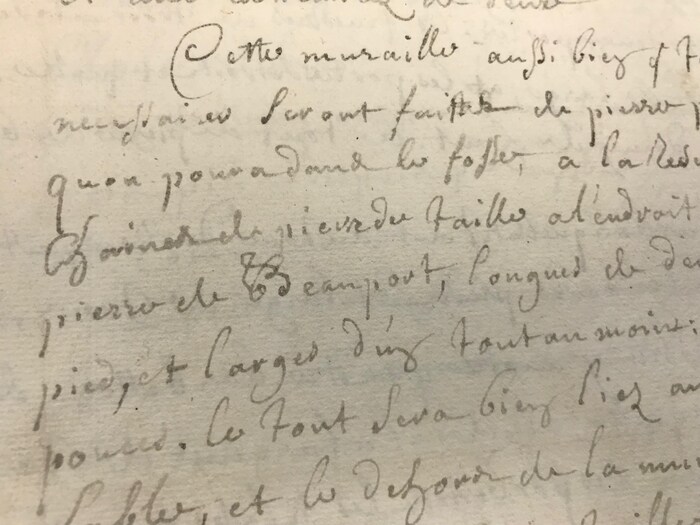 Cette muraille aussi bien q
necessaires seront faittes de pierre
quon poura dans le fossé, a la
Chaines de pierre de taille a l'endroit
pierre de Beauport, longues de
pied, et larges d'un tout au moins
pouces. le tout sera bien liez au
sable, et le dehors de la mu